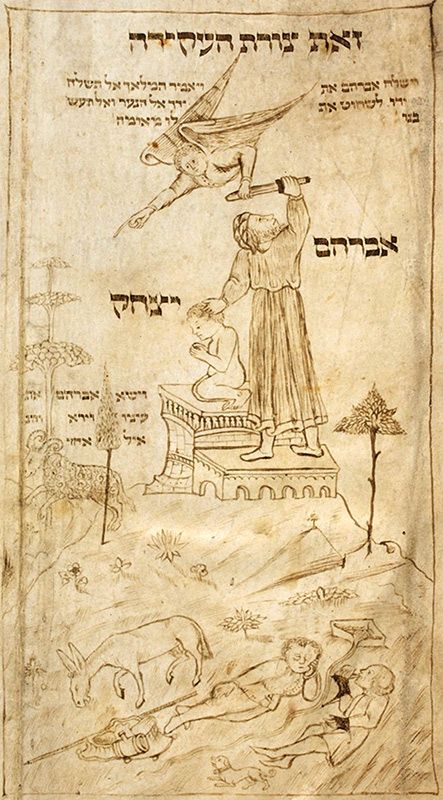 זאת צורת העקידה
וישלח אברהם את
ידו לשחוט את
בנו
ויאמר המלאך אל תשלח
ידך אל הנער ואל תעש
לו מאומה
אברהם
יצחק
וישא אברהם את
עיניו וירא
איל